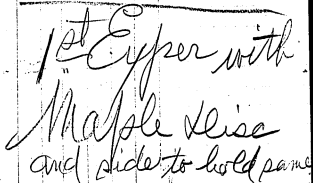 1st Exper with
Maple Disc
and side to hold same